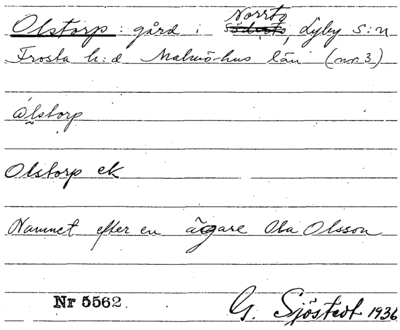 Norrto
Olstorp : gård i Södhsto, Lyby s:n
Frosta h:d Malmöhus län (nr. 3)
ålstorp
Olstorp ek
Namnet efter en ägare Ola Olsson
Nr 5562 G. Sjöstedt 1936